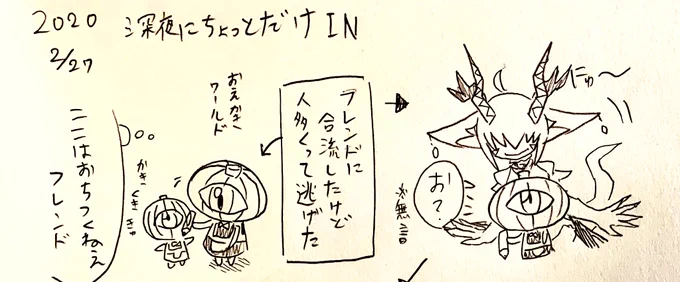 2020 深夜にちょっとだけIN
2/27
にゅ〜
お?
※無言
フレンドに
合流したけど
人多くって逃げた
おえかく
ワールド
かき
くき
きゅ
ここはおちつくねえ
フレンド